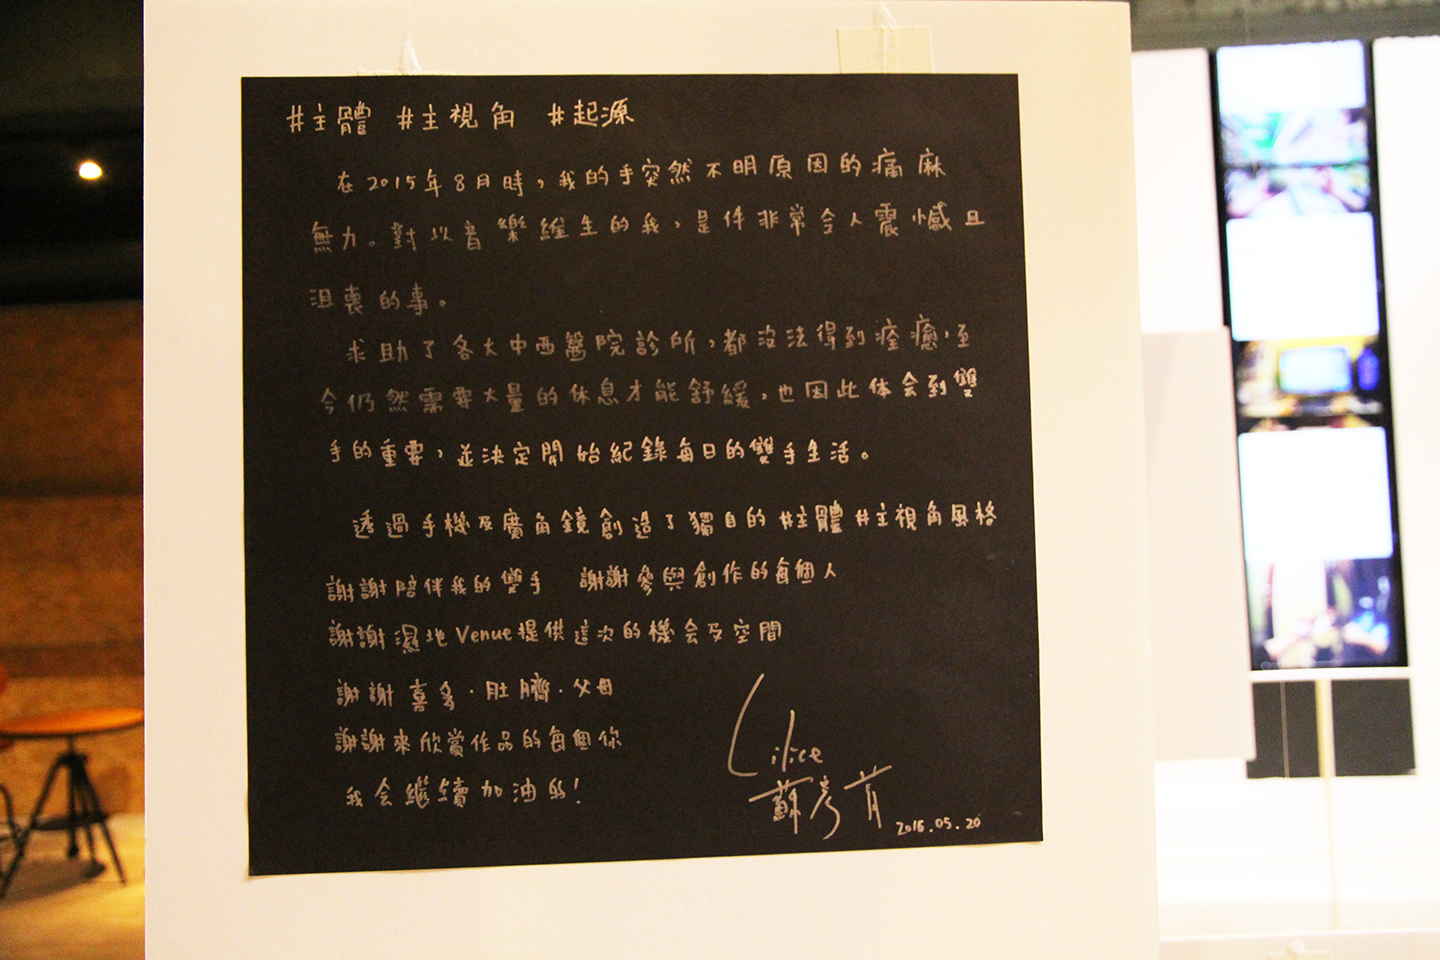 #主體 #主視角 #起源
在2015年8月時，我的手突然不明原因的痛麻
無力。對以音樂維生的我，是件非常令人震憾且
沮喪的事。
求助了各大中西醫院診所，都沒法得到痊癒，至
今仍然需要大量的休息才能舒緩，也因此体会到雙
手的重要，並決定開始紀錄每日的雙手生活。
透過手機及廣角鏡創造了獨自的#主體#主視角風格
謝謝陪伴我的雙手　謝謝參與創作的每個人
謝謝濕地Venue提供這次的機会及空間
謝謝喜多·肚臍·父母
謝謝來欣賞作品的每個你
我会繼續加油的!
Lilice
蘇彥
2016.05.20